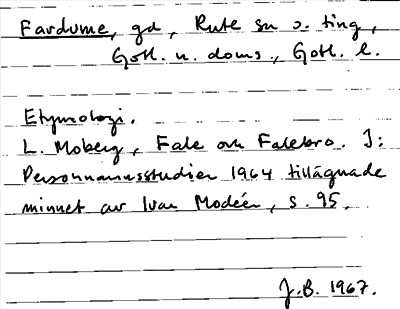 Fardume, gd, Rute sn o. ting,
Gotl. n. doms., Gotl. l.
Etymologi.
L. Moberg, Fale och Falebro. I:
Personnamnsstudier 1964 tillägnade
minnet av Ivar Modéer, s. 95.
J.B. 1967.